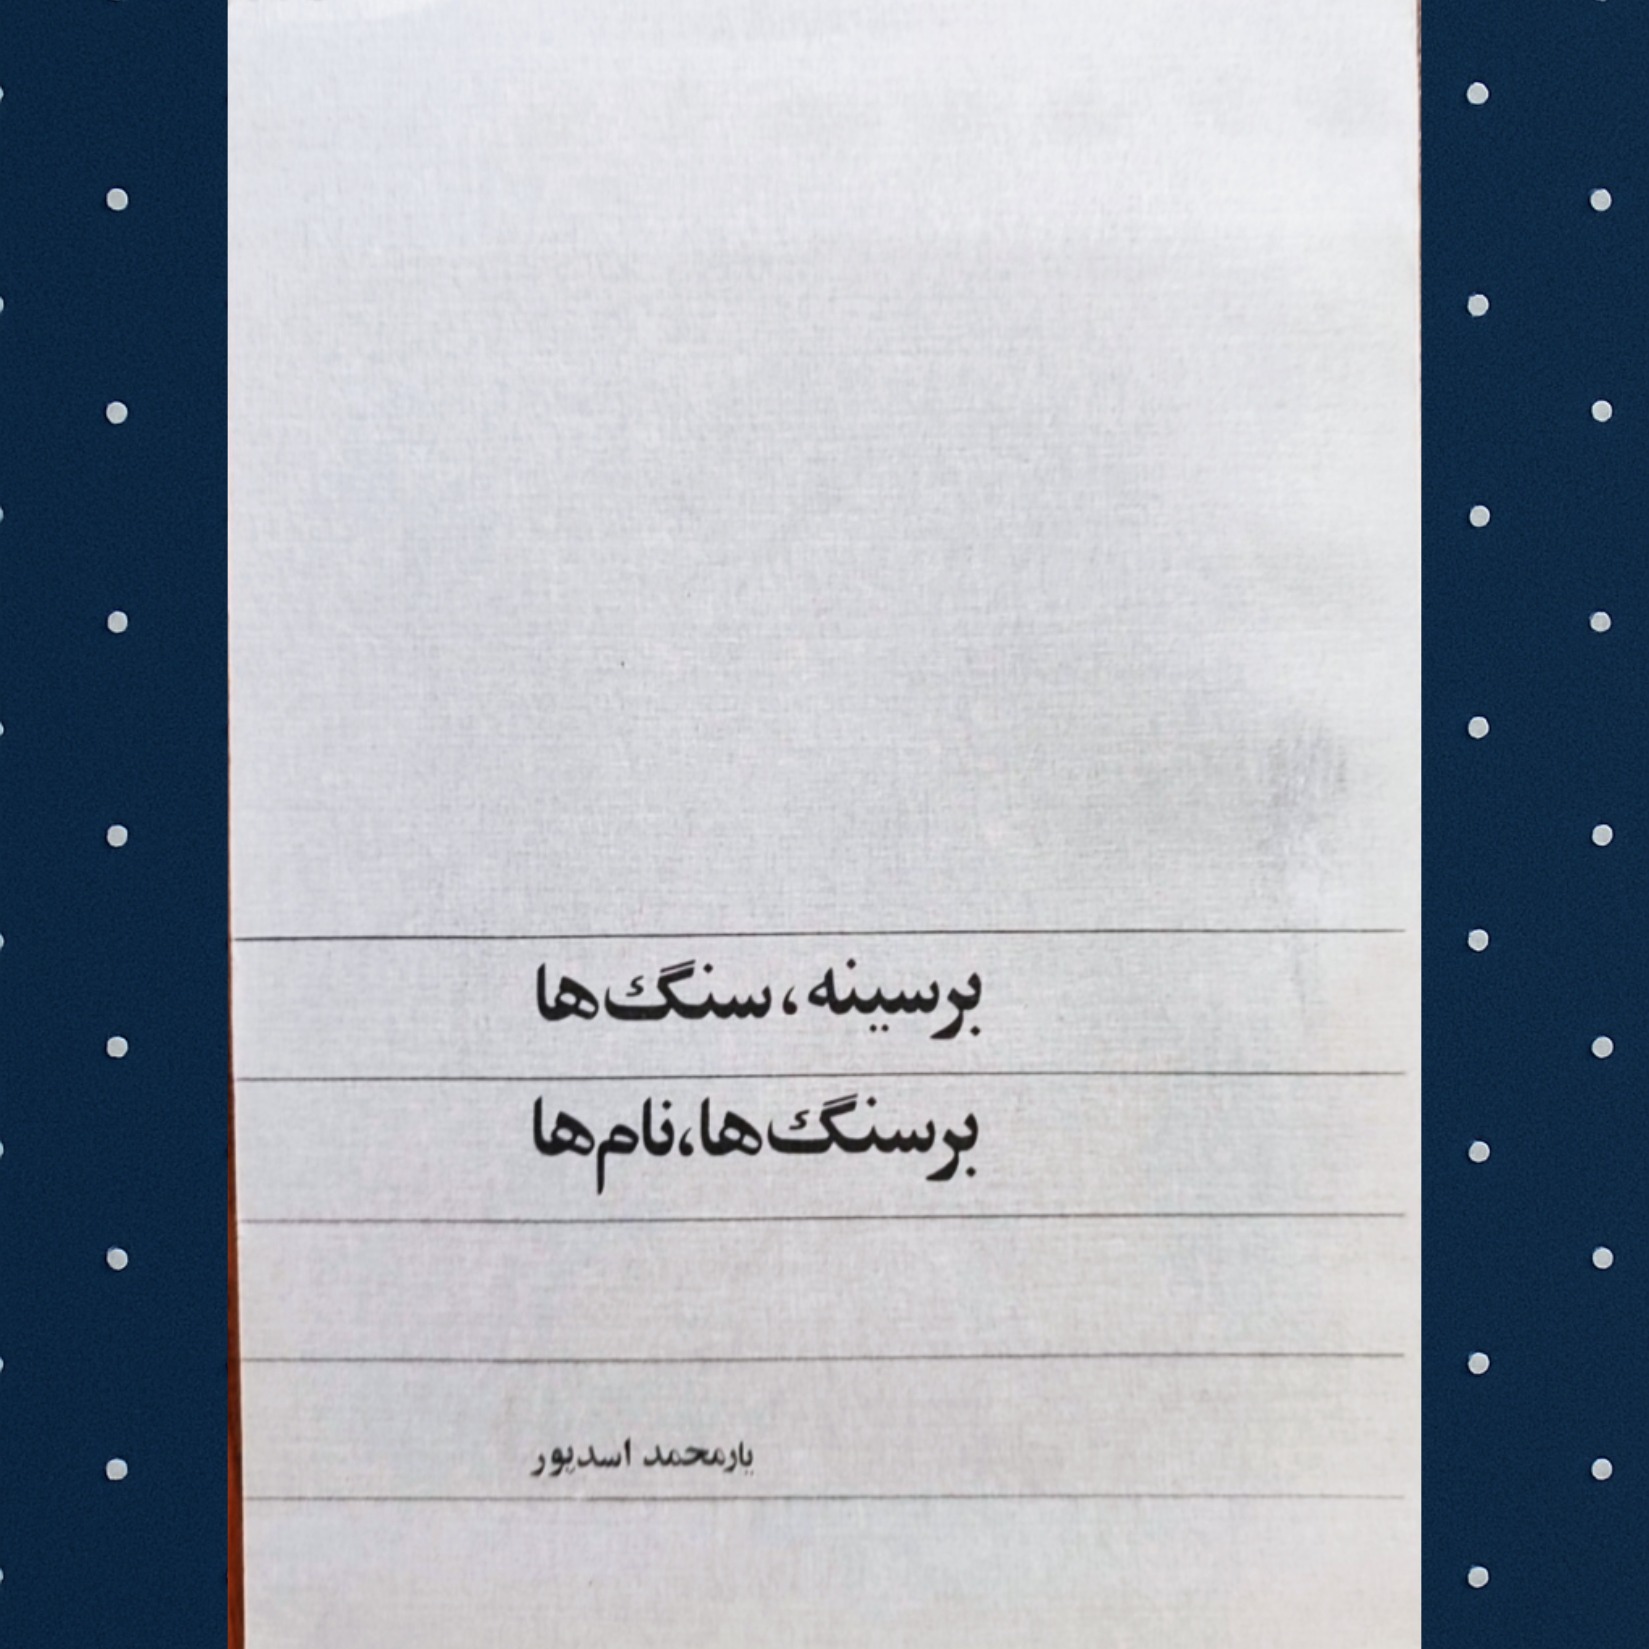 برسینه، سنگ‌ها
برسنگ‌ها،نام‌ها
یارمحمد اسدپور